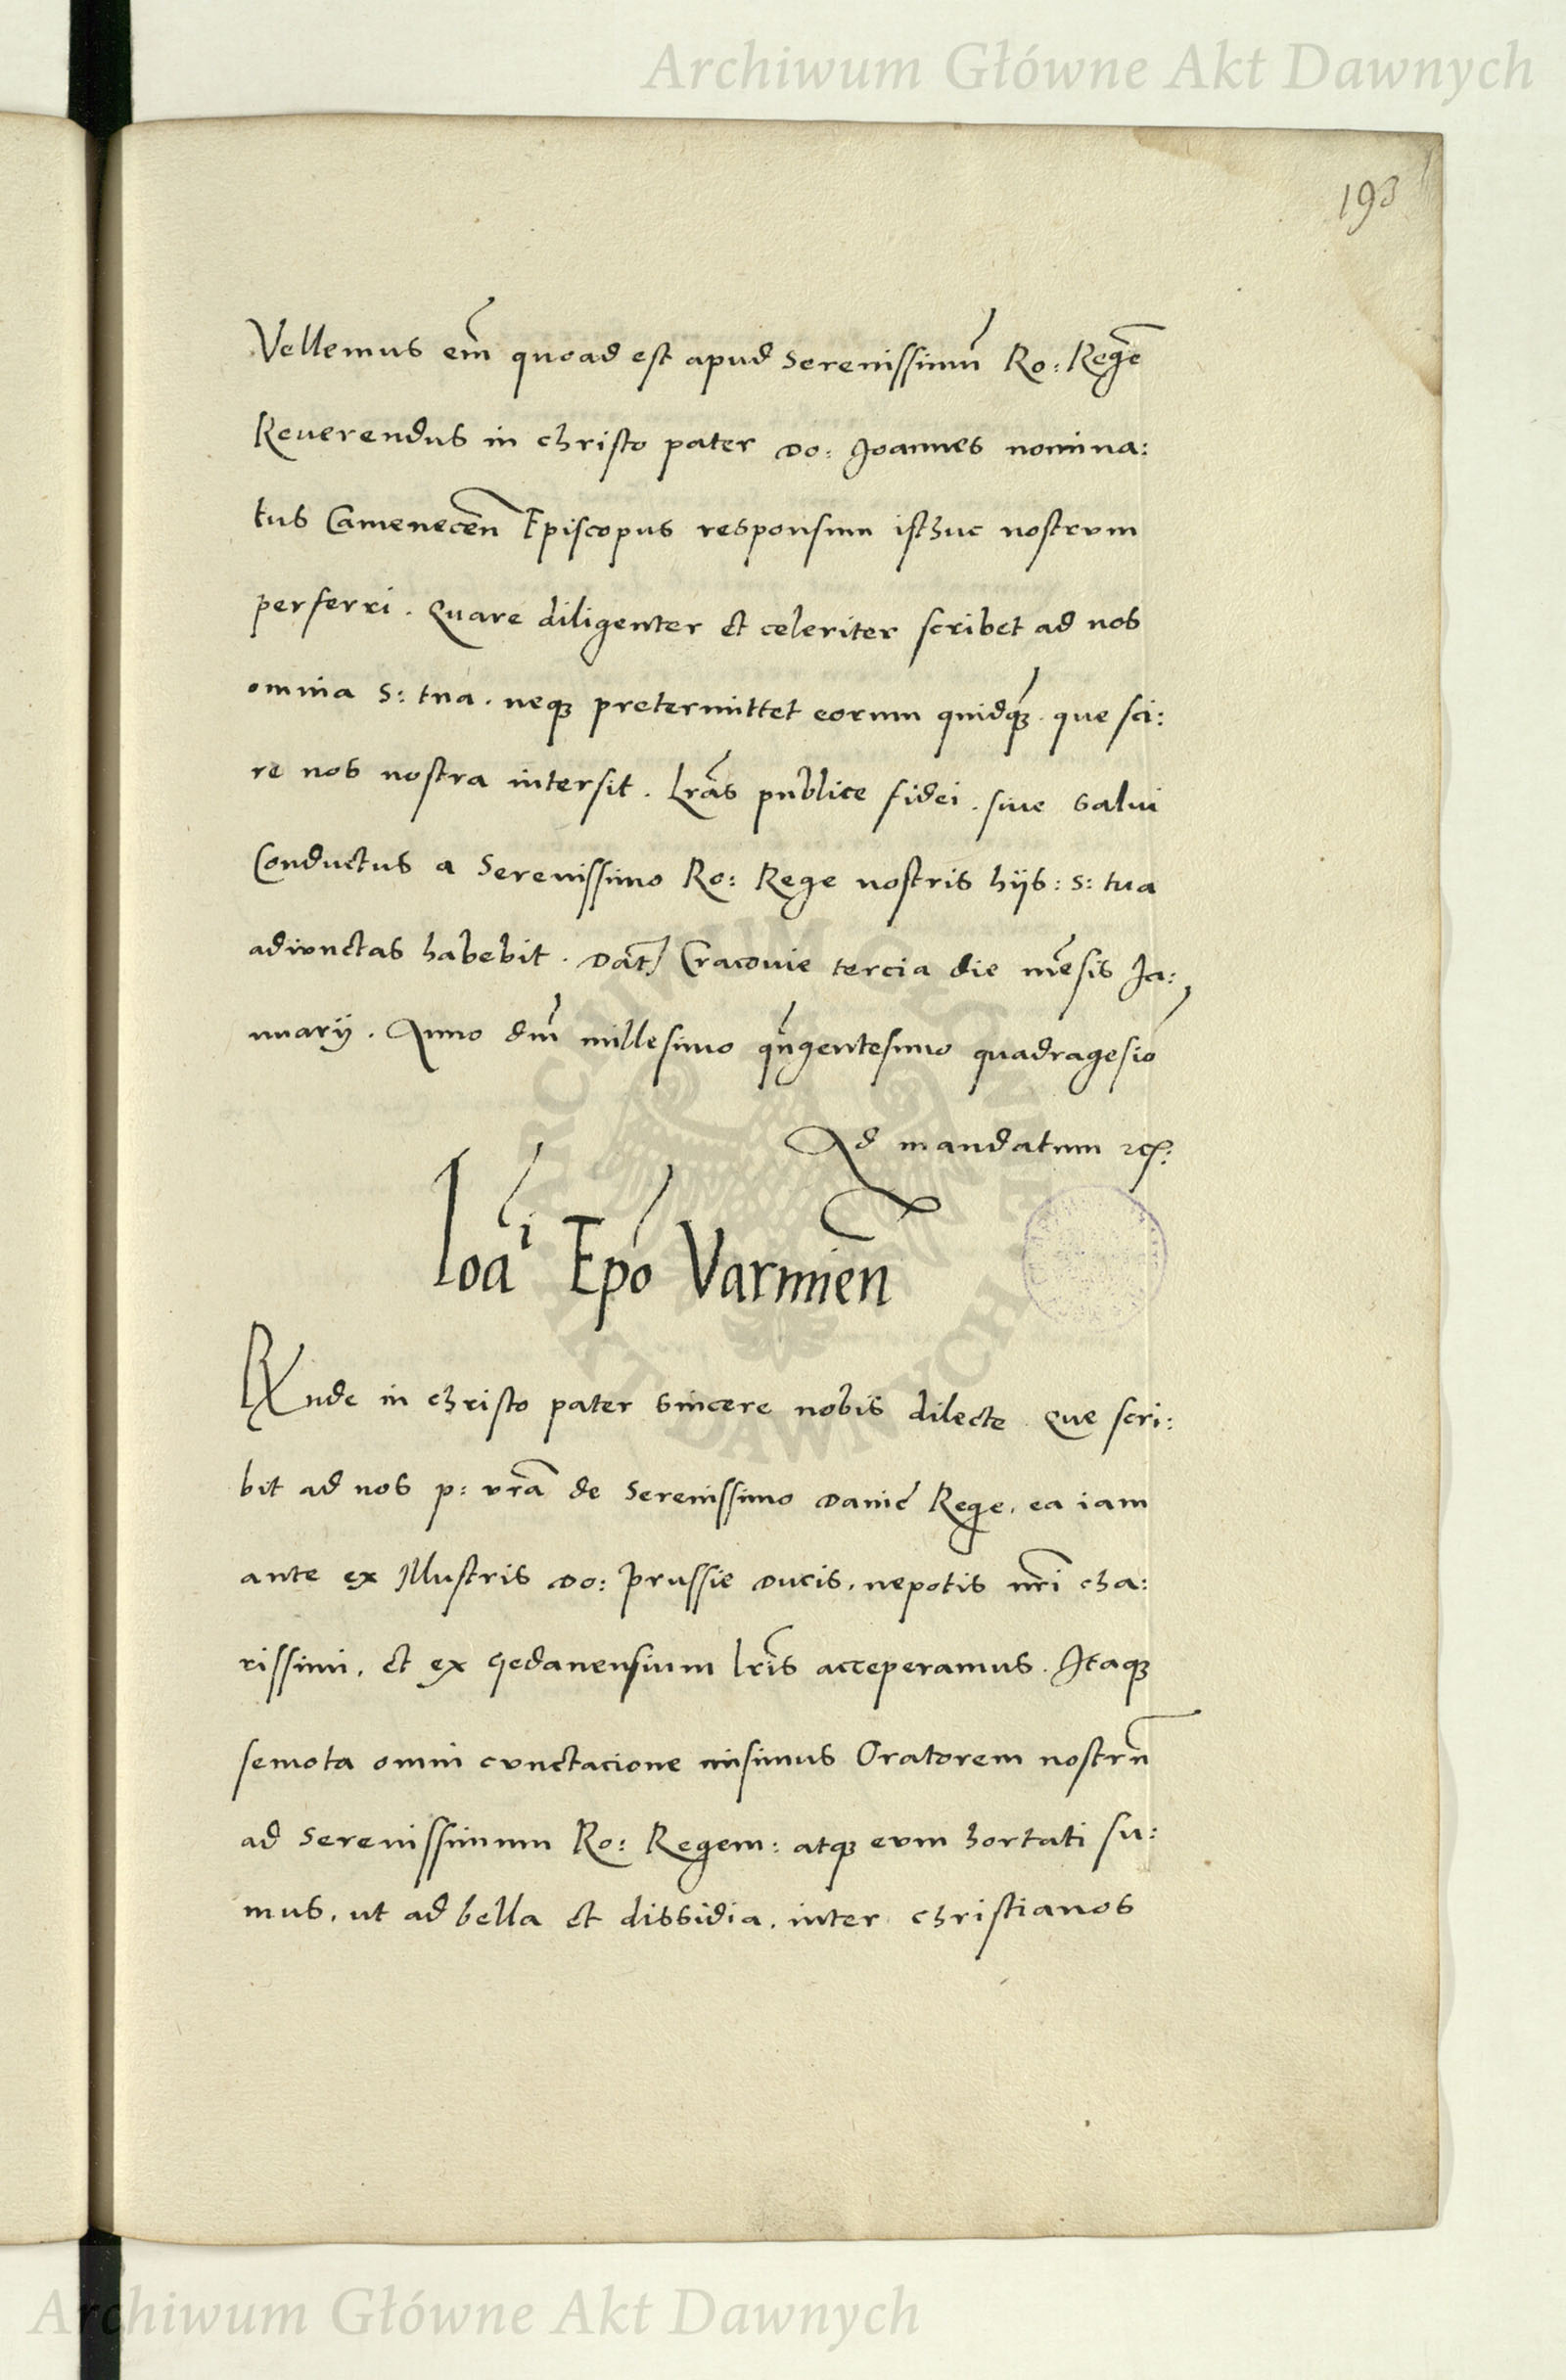 Archiwum Główne Akt Dawnych
193
Vellemus em̃ quoad est apud Serenissimũ Ro: Regẽ
Reuerendus in christo pater do: Joannes nomina:
tus Camenecen̄ Episcopus responsum isthuc nostrum
perferri. Quare diligenter et celeriter scribet ad nos
omnia S: tua. neqꝫ pretermittet eorum quidqꝫ. que sci:
re nos nostra intersit. Lr̃as publice fidei. siue salui
Conductus a Serenissimo Ro: Rege nostris hijs: S: tua
adiunctas habebit. Dat̃ Cracouie tercia die mẽsis Ja:
nuarij. Anno dñi millesimo qñgentesimo quadragesiõ
Ad mandatum rcꝭ:
Ioãi Epõ Varmien̄
Rx̃nde in christo pater sincere nobis dilecte. Que scri:
bit ad nos p: vr̃a de Serenissimo Danie Rege. ea iam
ante ex Illustris do: Prussie Ducis. nepotis nr̃i cha:
rissimi. et ex Gedanensium lr̃is acceperamus. Itaqꝫ
semota omni cunctacione misimus Oratorem nostrũ
ad Serenissimum Ro: Regem: atqꝫ eum hortati su:
mus. ut ad bella et dissidia. inter christianos
Archiwum Główne Akt Dawnych
ARCHIWUM GŁÓWNE AKT DAWNYCH